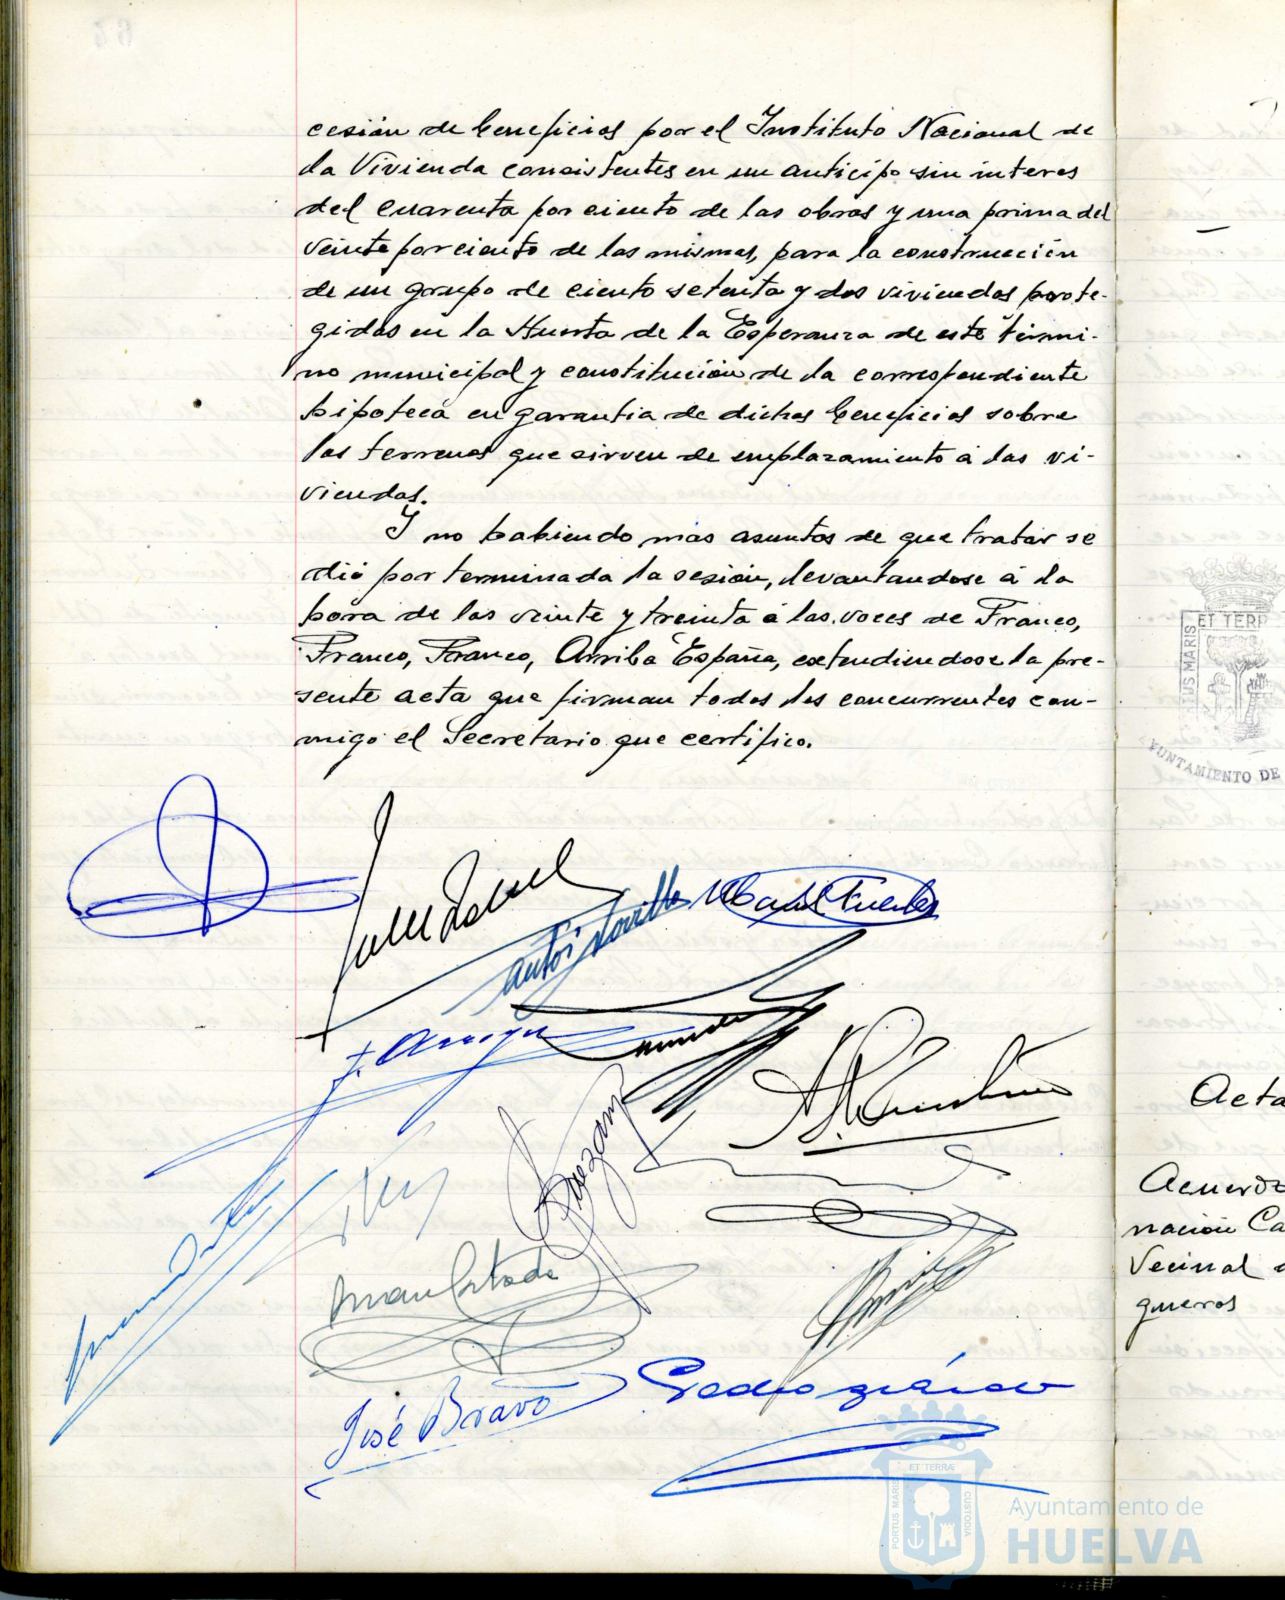 cesión de beneficios por el Instituto Nacional de
la Vivienda consistentes en un anticipo sin interes
del cuarenta por ciento de las obras y una prima del
veinte por ciento de las mismas, para la construcción
de un grupo de ciento setenta y dos viviendas prote-
gidas en la Huerta de la Esperanza de este térmi-
no municipal y constitución de la correspondiente
hipoteca en garantia de dichos beneficios sobre
los terrenos que sirven de emplazamiento á las vi-
viendas.
Y no habiendo mas asuntos de que tratar se
dió por terminada la sesión, levantandose á la
hora de las veinte y treinta á las voces de Franco,
Franco, Franco, Arriba España, extendiendose la pre-
sente acta que firman todos los concurrentes con-
migo el Secretario que certifico.
ET TERR
US MARIS
UNTAMIENTO DE
Acta
nación Ca
Vecinal
gueros
José Bravo
PORTUS MARIS
ET TERRÆ
CUSTODIA
Ayuntamiento de
HUELVA